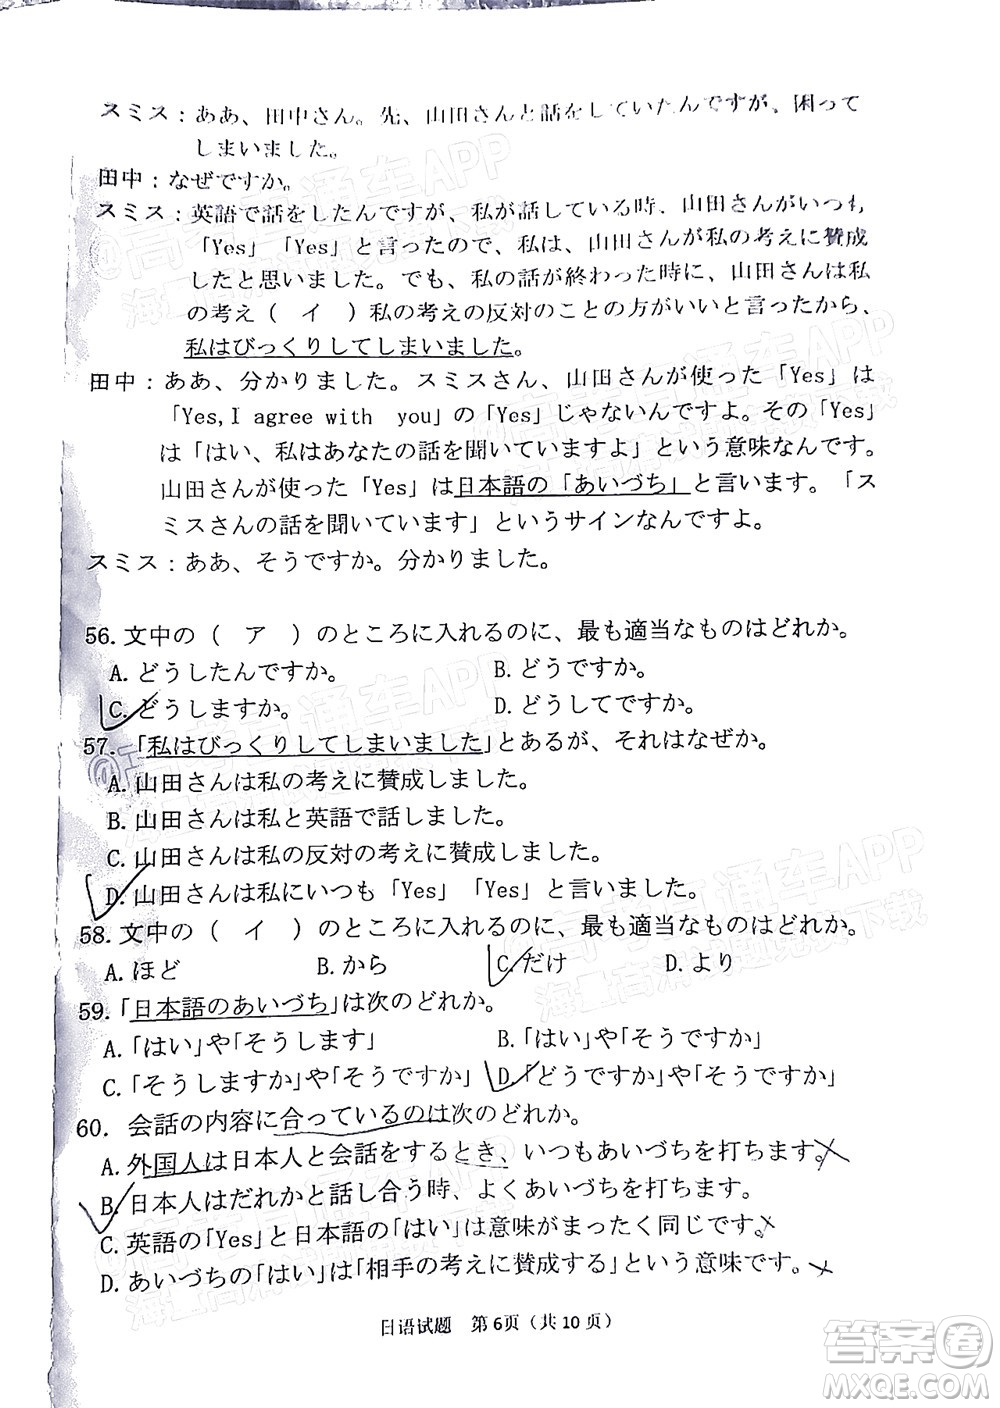 スミス：ああ、田中さん。先、山田さんと話をしていたんですが、困って
しまいました。
田中：なぜですか。
スミス：英語で話をしたんですが、私が話している時、山田さんがいつも
「Yes」「Yes」と言ったので、私は、山田さんが私の考えに賛成
したと思いました。でも、私の話が終わった時に、山田さんは私
の考え（　イ　）私の考えの反対のことの方がいいと言ったから、
私はびっくりしてしまいました。
田中：ああ、分かりました。スミスさん、山田さんが使った「Yes」は
「Yes,I agree with you」の「Yes」じゃないんですよ。その「Yes」
は「はい、私はあなたの話を聞いていますよ」という意味なんです。
山田さんが使った「Yes」は日本語の「あいづち」と言います。「ス
ミスさんの話を聞いています」というサインなんですよ。
スミス：ああ、そうですか。分かりました。
56. 文中の（　ア　）のところに入れるのに、最も適当なものはどれか。
A. どうしたんですか。 B. どうですか。
C. どうしますか。 D. どうしてですか。
57.「私はびっくりしてしまいました」とあるが、それはなぜか。
A. 山田さんは私の考えに賛成しました。
B. 山田さんは私と英語で話しました。
C. 山田さんは私の反対の考えに賛成しました。
D. 山田さんは私にいつも「Yes」「Yes」と言いました。
58. 文中の（　イ　）のところに入れるのに、最も適当なものはどれか。
A. ほど B. から C. だけ D. より
59.「日本語のあいづち」は次のどれか。
A.「はい」や「そうします」 B.「はい」や「そうですか」
C.「そうしますか」や「そうです」 D.「どうですか」や「そうですか」
60. 会話の内容に合っているのは次のどれか。
A. 外国人は日本人と会話をするとき、いつもあいづちを打ちます。
B. 日本人はだれかと話し合う時、よくあいづちを打ちます。
C. 英語の「Yes」と日本語の「はい」は意味がまったく同じです。
D. あいづちの「はい」は「相手の考えに賛成する」という意味です。
日语试题　第 6页（共 10 页）
答案卷
MXQE.COM